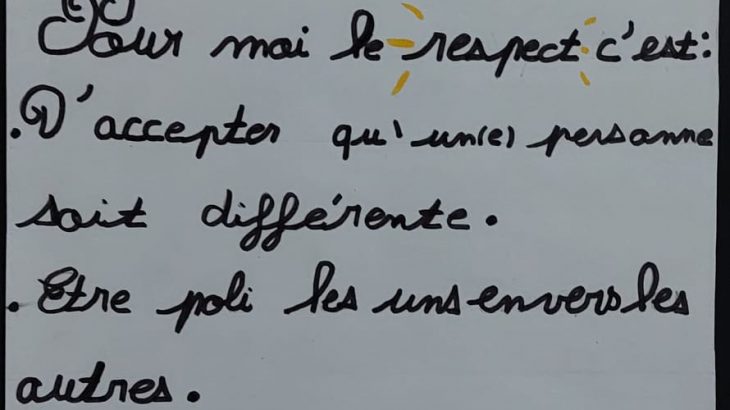 Pour moi le respect c'est:
.D'accepter qu'un(e) personne
soit différente.
. Etre poli les uns envers les
autres.